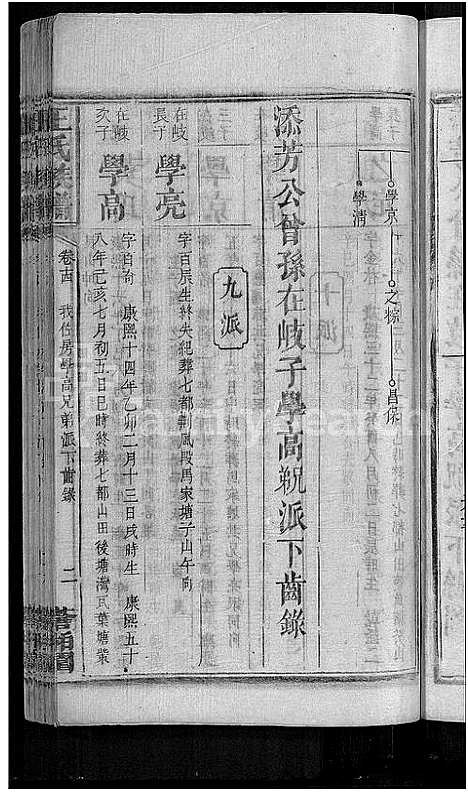 學京
之棕
昌保
學淸
添芳公曾孫在岐子學高䚹派下齒錄
九派
在岐長子
學亮
字百辰生終失紀葬七都荆風段馬家塘子山午向
在岐次子
學高
字自奇 康熙十四年乙卯二月十三日戌時生 康熙五十
八年己亥七月初五日巳時終葬七都山田後塘灣瓦葉塘業
王氏族譜
卷十四 我份房學高兄弟派下齒錄
二